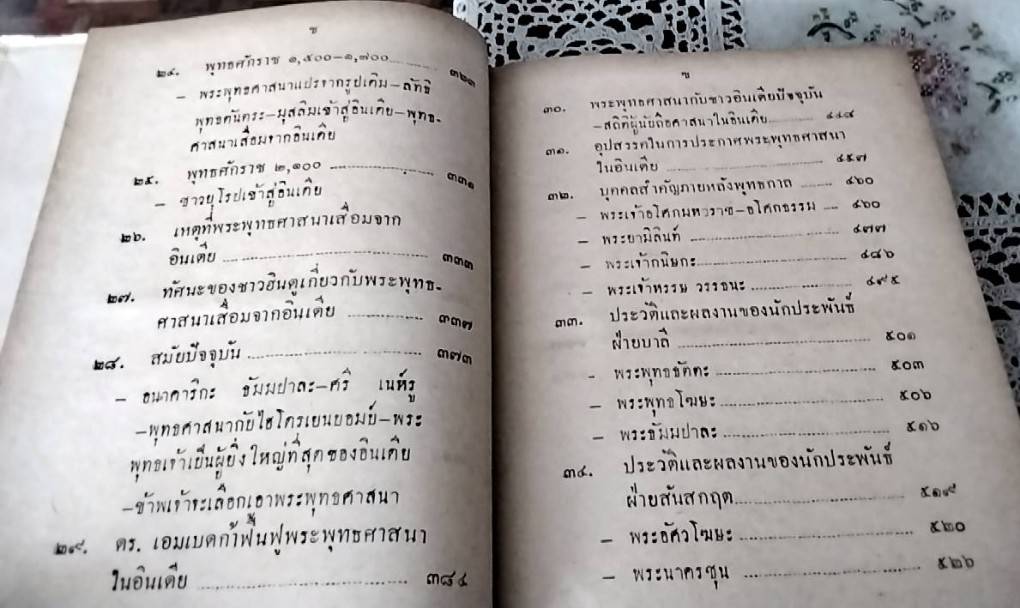 ช
๒๔. พุทธศักราช ๑,๕๐๐–๑,๗๐๐ ........ ๓๒๑
– พระพุทธศาสนาแปรจากรูปเดิม–ลัทธิ
พุทธตันตระ–มุสลิมเข้าสู่อินเดีย–พุทธ-
ศาสนาเสื่อมจากอินเดีย
๒๕. พุทธศักราช ๒,๑๐๐ ........ ๓๓๑
– ชาวยุโรปเข้าสู่อินเดีย
๒๖. เหตุที่พระพุทธศาสนาเสื่อมจาก
อินเดีย ........ ๓๓๓
๒๗. ทัศนะของชาวฮินดูเกี่ยวกับพระพุทธ-
ศาสนาเสื่อมจากอินเดีย ........ ๓๓๗
๒๘. สมัยปัจจุบัน ........ ๓๗๓
– อนาคาริกะ ธัมมปาละ–ศรี เนห์รู
–พุทธศาสนากับไฮโดรเยนบอมบ์–พระ
พุทธเจ้าเป็นผู้ยิ่งใหญ่ที่สุดของอินเดีย
–ข้าพเจ้าจะเลือกเอาพระพุทธศาสนา
๒๙. ดร. เอมเบดก้าฟื้นฟูพระพุทธศาสนา
ในอินเดีย ........ ๓๘๔
๓๐. พระพุทธศาสนากับชาวอินเดียปัจจุบัน
–สถิติผู้นับถือศาสนาในอินเดีย ........ ๔๔๘
๓๑. อุปสรรคในการประกาศพระพุทธศาสนา
ในอินเดีย ........ ๔๕๗
๓๒. บุคคลสำคัญภายหลังพุทธกาล ........ ๔๖๐
– พระเจ้าอโศกมหาราช–อโศกธรรม ........ ๔๖๐
– พระยามิลินท์ ........ ๔๗๗
– พระเจ้ากนิษกะ ........ ๔๘๖
– พระเจ้าหรรษ วรรธนะ ........ ๔๙๕
๓๓. ประวัติและผลงานของนักประพันธ์
ฝ่ายบาลี ........ ๕๐๑
– พระพุทธทัตตะ ........ ๕๐๓
– พระพุทธโฆษะ ........ ๕๐๖
– พระธัมมปาละ ........ ๕๑๖
๓๔. ประวัติและผลงานของนักประพันธ์
ฝ่ายสันสกฤต ........ ๕๑๙
– พระอัศวโฆษะ ........ ๕๒๐
– พระนาคารชุน ........ ๕๒๖